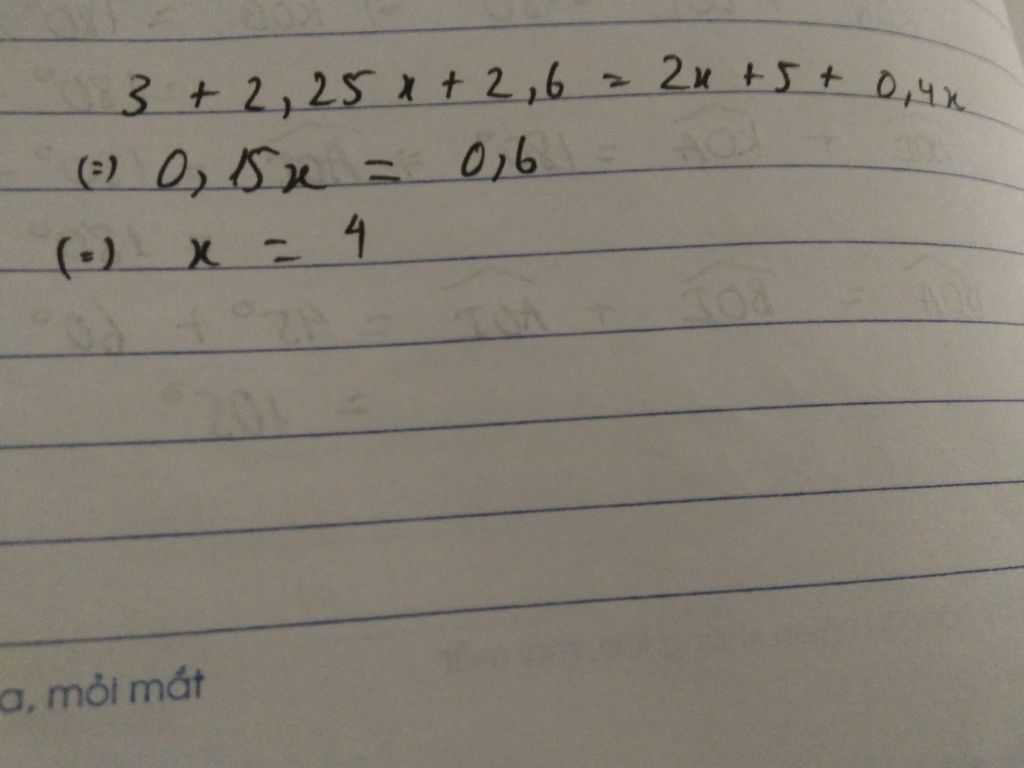 3 + 2,25x + 2,6 = 2x + 5 + 0,4x
(=) 0,15x = 0,6
(=) x = 4
a, mỏi mắt